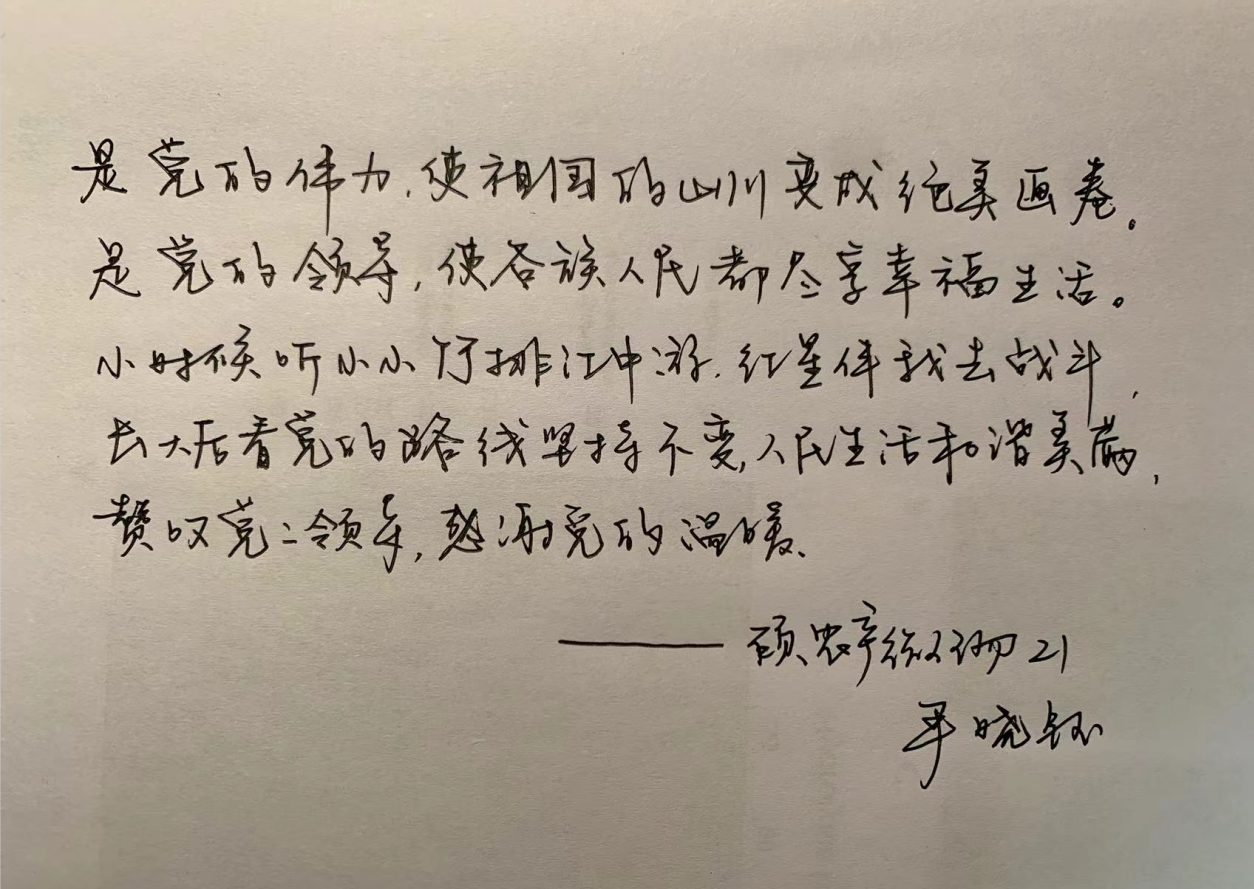 是党的伟力,使祖国的山川变成绝美画卷。
是党的领导,使各族人民都尽享幸福生活。
小时候听小小竹排江中游,红星伴我去战斗,
长大后看党的路线坚持不变,人民生活和谐美满,
赞叹党之领导,感谢党的温暖、
——硕农产 21
平晓钰